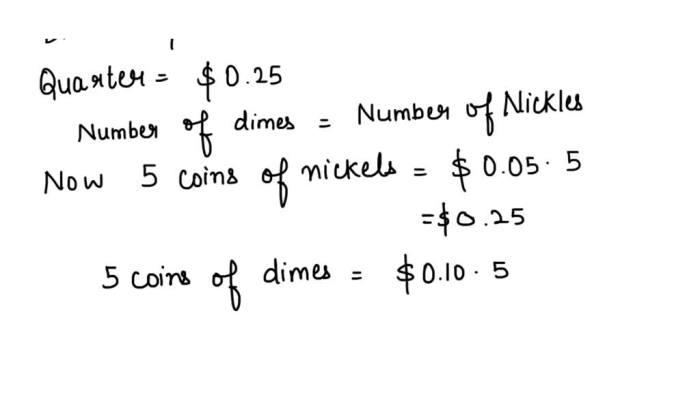 Quarter = $0.25
Number of dimes = Number of Nickles
Now 5 coins of nickels = $0.05 · 5
= $0.25
5 coins of dimes = $0.10 · 5